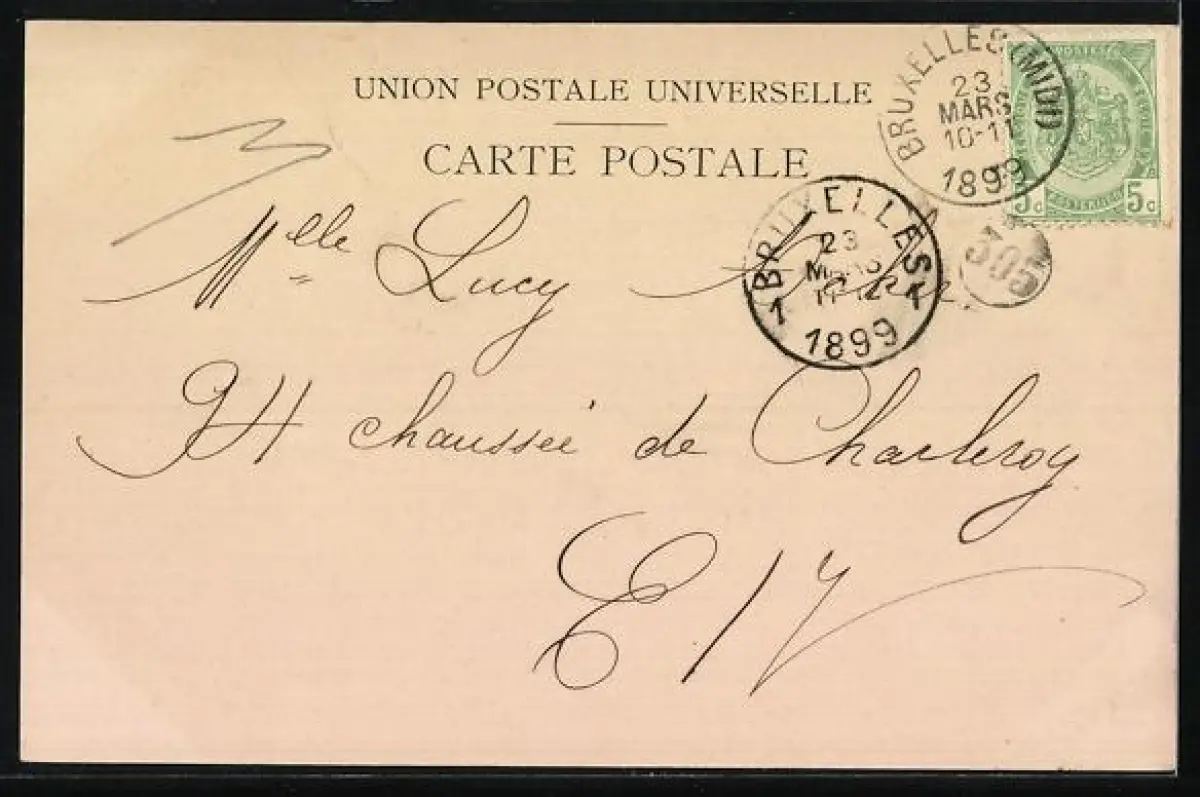 UNION POSTALE UNIVERSELLE
CARTE POSTALE
BRUXELLES (MIDI)
23
MARS
10-11
1899
POSTES
5c 5c
BRUXELLES
1 1
23
MARS
1899
305
Mlle Lucy
94 chaussée de Charleroy
E/V